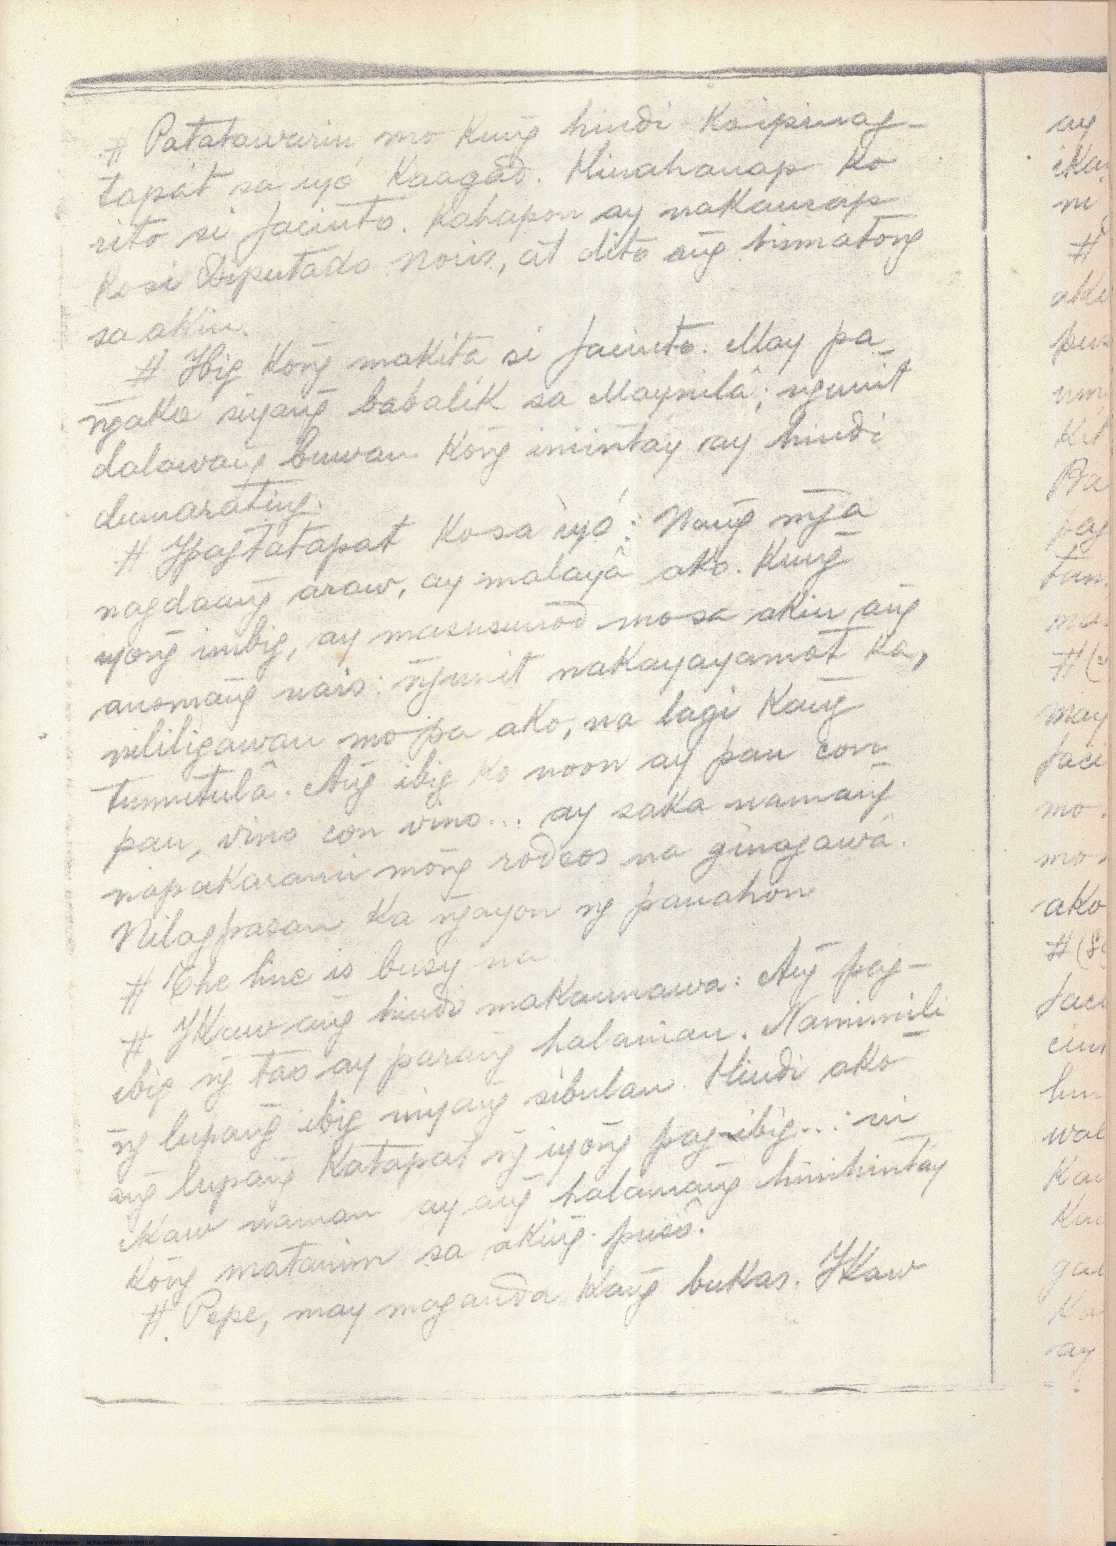 # Patatawarin mo kung hindi ko ipinag-
tapát sa iyó kaagád. Hinahanap ko
rito si Jacinto. Kahapon ay nakausap
ko si Diputado Noris, at dito ang
sa akin.
# Ibig kong makita si Jacinto. May pa-
ngako siyang babalík sa Maynilâ; ngunit
dalawang buwan kong iniintay ay hindi
dumarating.
# Ipagtatapat ko sa iyó: Nang mga
nagdaang araw, ay malayâ ako. Kung
iyong imbig, ay masusunod mo sa akin ang
anomang nais: ngunit nakayayamot ka,
nililigawan mo pa ako, na lagi kang
tumutulâ. Ang ibig ko noon ay pan con
pan, vino con vino... ay saka namang
napakarami mong rodeos na ginagawâ.
Nilagpasan ka ngayon ng panahon
# The line is busy na
# Ikaw ang hindi makaunawa: Ang pag-
ibig ng tao ay parang halaman. Namimili
ng lupang ibig niyang sibulan. Hindi ako
ang lupang katapat ng iyong pag-ibig... ni
ikaw naman ay ang halamang hinihintay
kong matanim sa aking pusò.
# Pepe, may maganda kang bukas. Ikaw
ay
ni
#
may
mo
ako
ay